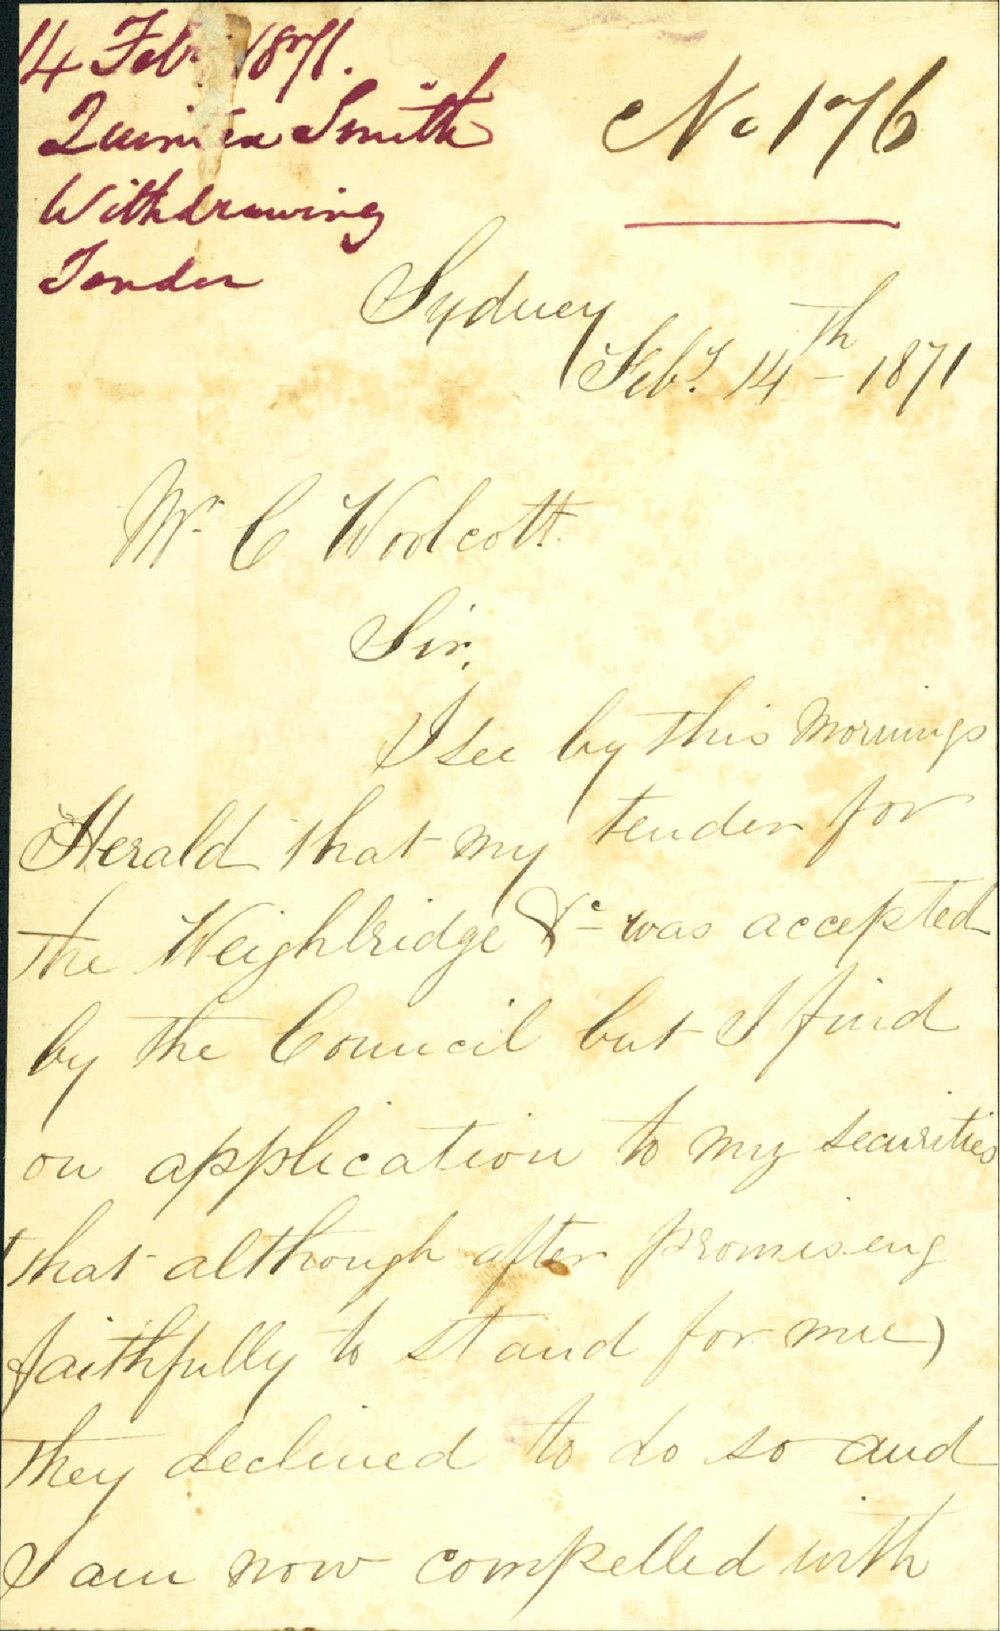 14 Feby 1871.
Smith
Withdrawing
Tender
No 176
Sydney
Feby. 14th 1871
Mr C Woolcott.
Sir,
I see by this Mornings
Herald that my tender for
the Weighbridge &c was accepted
by the Council but I find
on application to my securities
that although after promising
faithfully to stand for me)
they declined to do so and
I am now compelled with